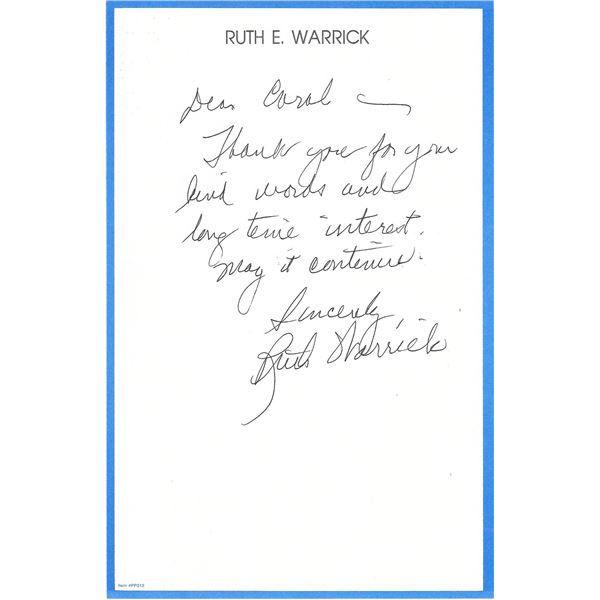 RUTH E. WARRICK
Dear Carol —
Thank you for your
kind words and
long time interest.
May it continue.
Sincerely,
Ruth Warrick
Item #PP212